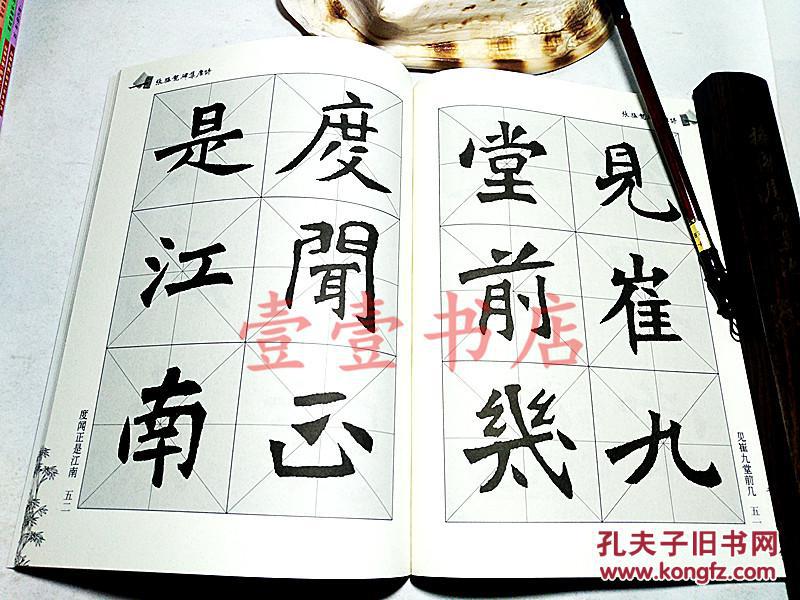 张猛龙碑集唐诗
見崔九
堂前幾
见崔九堂前几 五一
张猛龙碑集唐诗
度聞正
是江南
度闻正是江南 五二
壹壹书店
孔夫子旧书网
www.kongfz.com